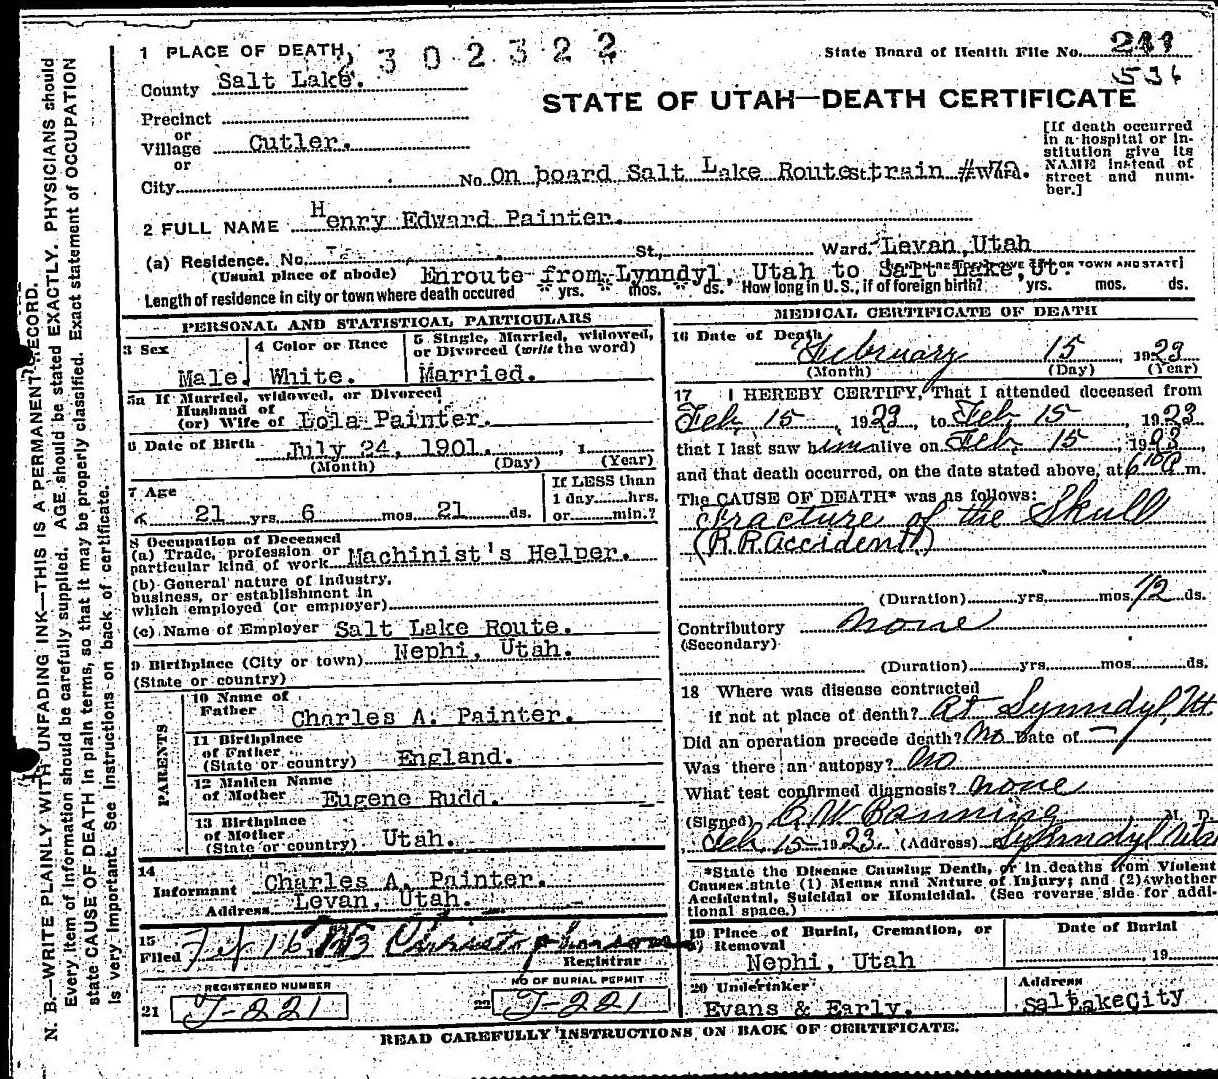 N. B.—WRITE PLAINLY WITH UNFADING INK—THIS IS A PERMANENT RECORD.
Every item of information should be carefully supplied. AGE should be stated EXACTLY. PHYSICIANS should
state CAUSE OF DEATH in plain terms, so that it may be properly classified. Exact statement of OCCUPATION
is very important. See instructions on back of certificate.
1 PLACE OF DEATH
2302322
State Board of Health File No.
536
County Salt Lake.
STATE OF UTAH—DEATH CERTIFICATE
Precinct
or
Village Cutler.
or
City
No On board Salt Lake Route train
[If death occurred
in a hospital or in-
stitution give its
NAME instead of
street and num-
ber.]
2 FULL NAME Henry Edward Painter.
(a) Residence. No. St., Ward. Levan, Utah
(Usual place of abode) Enroute from Lynndyl, Utah to Salt Lake, Ut. OR TOWN AND STATE]
Length of residence in city or town where death occured " yrs. " mos. " ds. How long in U. S., if of foreign birth? yrs. mos. ds.
PERSONAL AND STATISTICAL PARTICULARS
3 Sex
Male.
4 Color or Race
White.
5 Single, Married, widowed,
or Divorced (write the word)
Married.
5a If Married, widowed, or Divorced
Husband of
(or) Wife of Lola Painter.
6 Date of Birth July 24, 1901. , 1
(Month) (Day) (Year)
7 Age
21 yrs. 6 mos. 21 ds.
If LESS than
1 day hrs.
or min.?
8 Occupation of Deceased
(a) Trade, profession or
particular kind of work Machinist's Helper.
(b) General nature of industry,
business, or establishment in
which employed (or employer)
(c) Name of Employer Salt Lake Route.
9 Birthplace (City or town) Nephi, Utah.
(State or country)
PARENTS
10 Name of
Father Charles A. Painter.
11 Birthplace
of Father
(State or country) England.
12 Maiden Name
of Mother Eugene Rudd.
13 Birthplace
of Mother
(State or country) Utah.
14
Informant Charles A. Painter.
Address Levan, Utah.
15
Filed Feb 16 1923
Registrar
REGISTERED NUMBER
21 J-221
NO OF BURIAL PERMIT
22 J-221
MEDICAL CERTIFICATE OF DEATH
16 Date of Death
February 15, 1923
(Month) (Day) (Year)
17 I HEREBY CERTIFY, That I attended deceased from
Feb, 15, 1923, to Feb, 15, 1923
that I last saw him alive on Feb, 15, 1923,
and that death occurred, on the date stated above, at m.
The CAUSE OF DEATH* was as follows:
Fracture of the Skull
(R.R. Accident)
(Duration) yrs. mos. 1/2 ds.
Contributory none
(Secondary)
(Duration) yrs. mos. ds.
18 Where was disease contracted
if not at place of death? At Lynndyl, Ut
Did an operation precede death? No Date of —
Was there an autopsy? No
What test confirmed diagnosis? none
(Signed) M. D.
Feb 15 1923. (Address) Lynndyl Utah
*State the Disease Causing Death, or in deaths from Violent
Causes state (1) Means and Nature of Injury; and (2) whether
Accidental, Suicidal or Homicidal. (See reverse side for addi-
tional space.)
19 Place of Burial, Cremation, or
Removal
Nephi, Utah
Date of Burial
, 19
20 Undertaker
Evans & Early.
Address
Salt Lake City
READ CAREFULLY INSTRUCTIONS ON BACK OF CERTIFICATE.